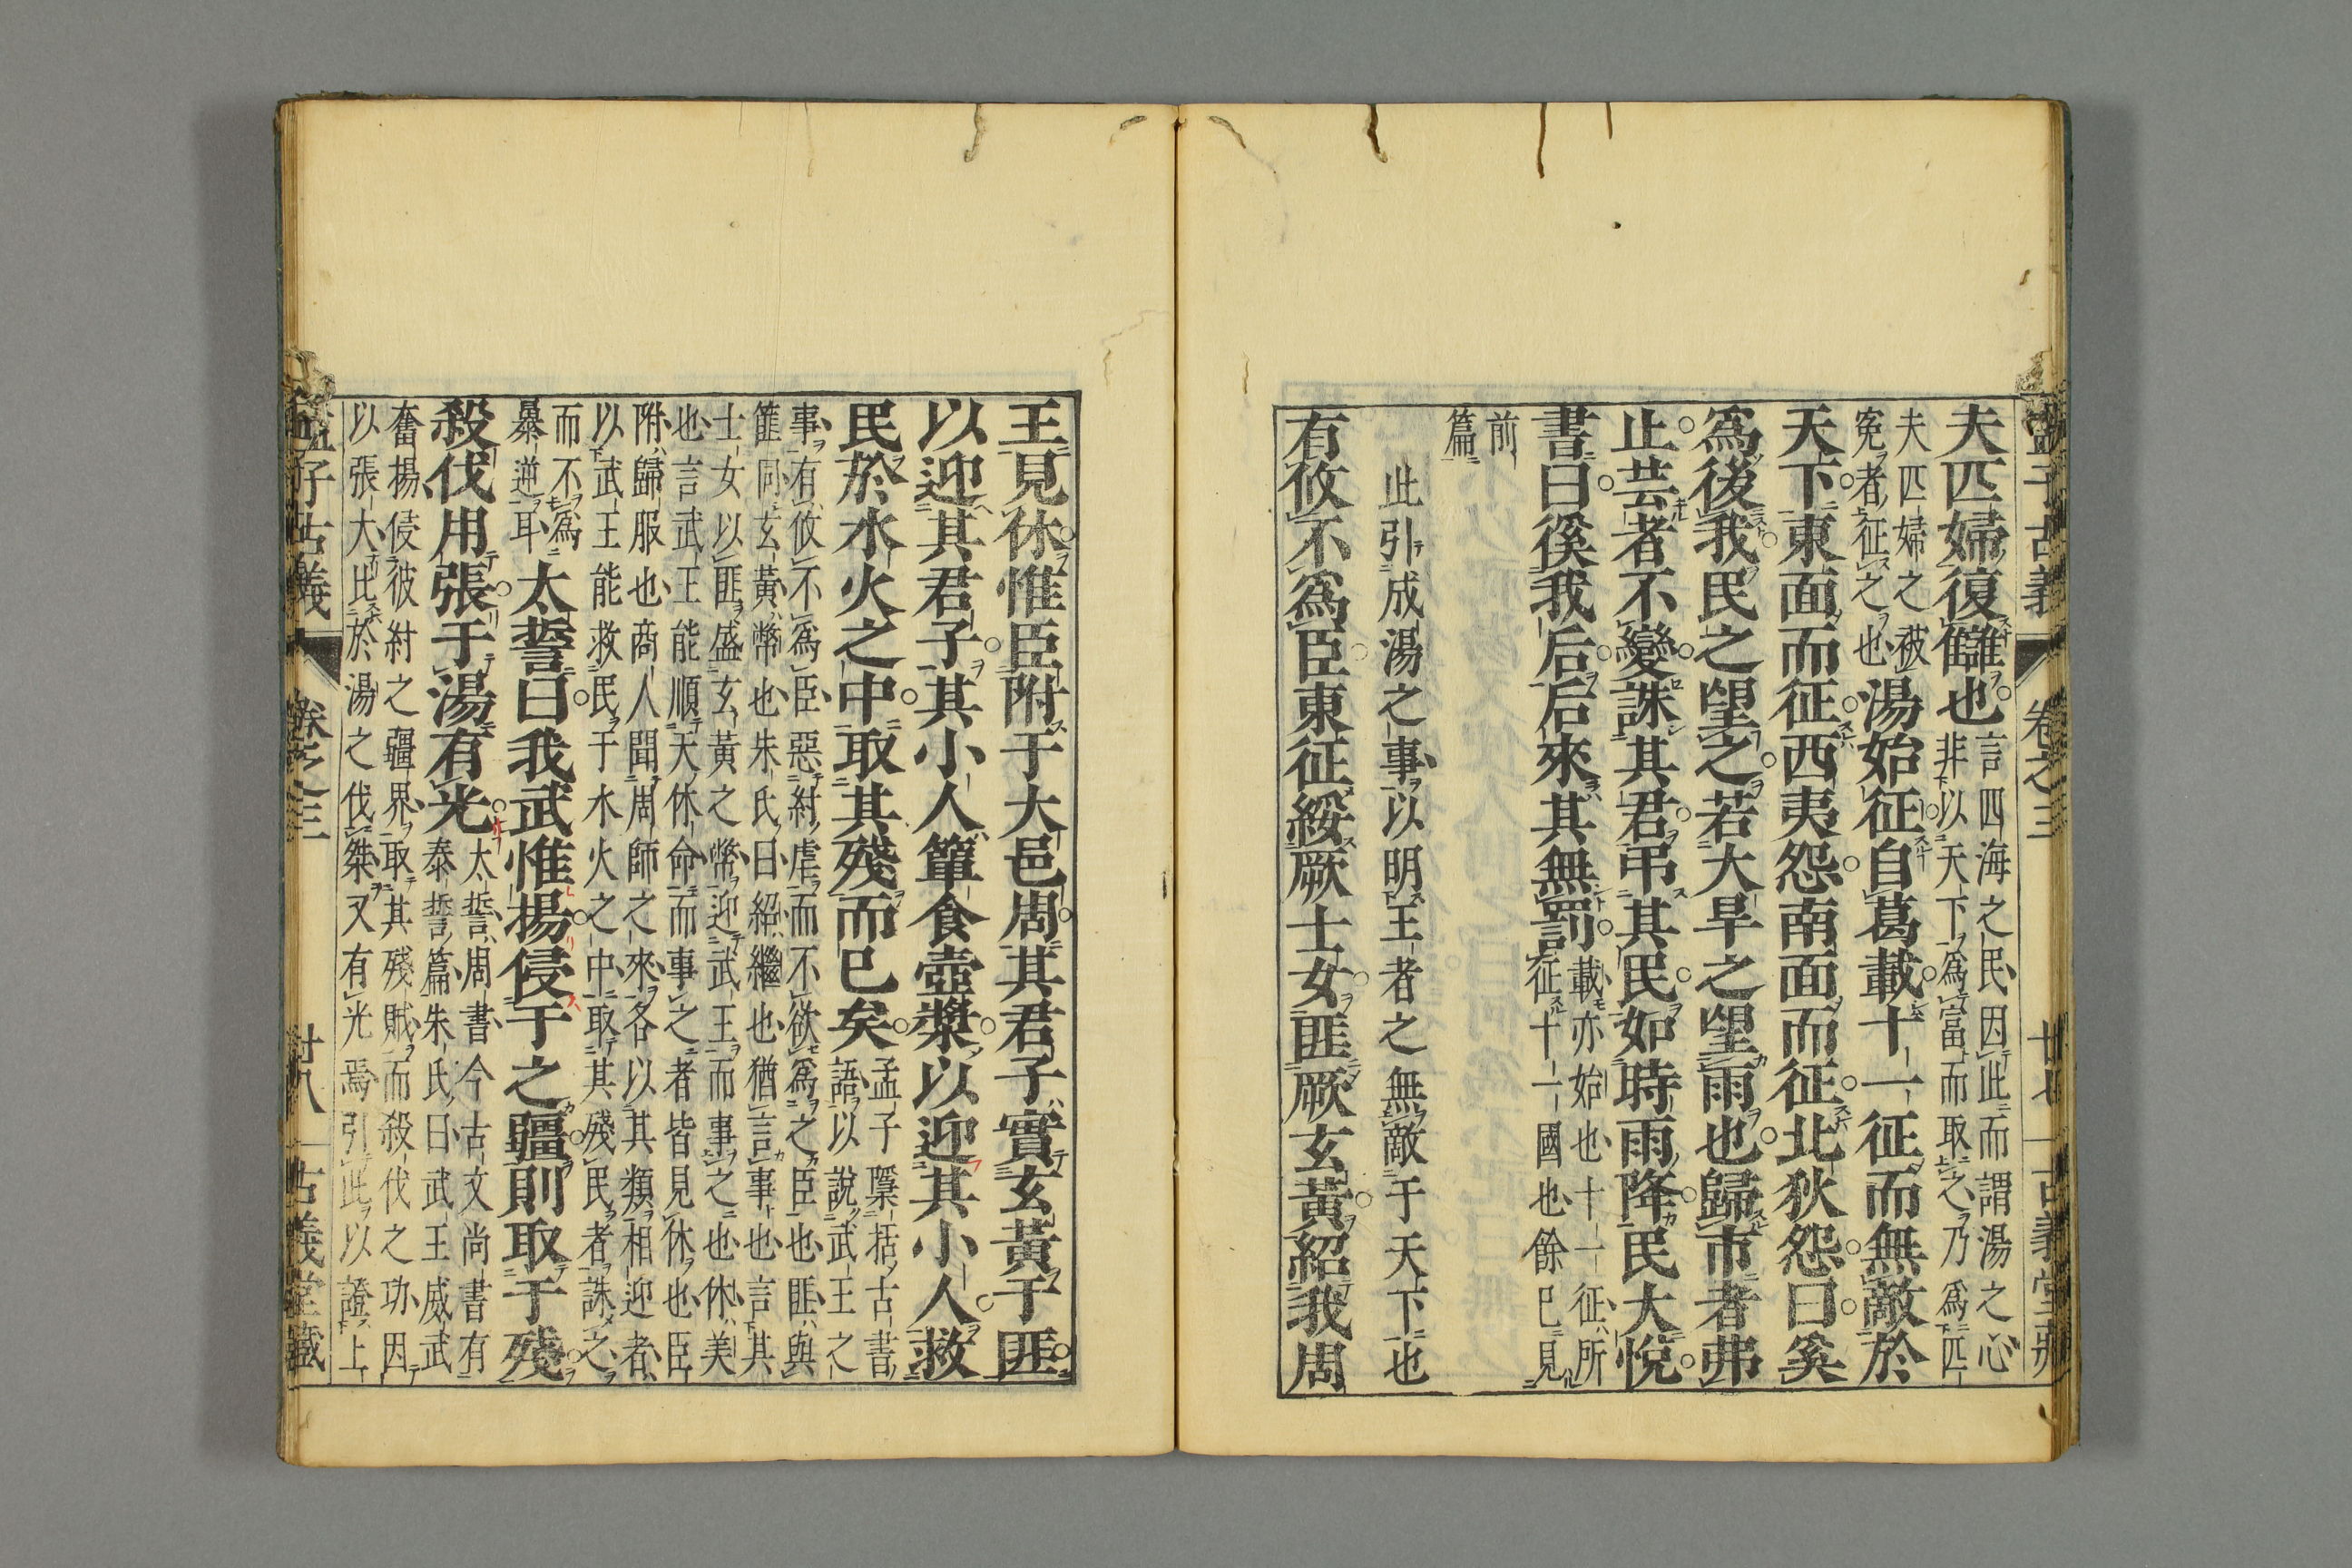 孟子古義 卷之三 廿七 古義堂藏
夫匹婦復讎也言四海之民因此而謂湯之心
非以天下為富而取之乃為匹
夫匹婦之被
寃者征之也湯始征自葛載十一征而無敵於
天下東面而征西夷怨南面而征北狄怨曰奚
爲後我民之望之若大旱之望雨也歸市者弗
止芸者不變誅其君弔其民如時雨降民大悅
書曰徯我后后來其無罰載亦始也十一征所
征十一國也餘已見
前
篇
此引成湯之事以明王者之無敵于天下也
有攸不爲臣東征綏厥士女匪厥玄黃紹我周
王見休惟臣附于大邑周其君子實玄黃于匪
以迎其君子其小人簞食壺漿以迎其小人救
民於水火之中取其殘而已矣孟子檃括古書
語以說武王之
事有攸不為臣惡紂虐而不欲為之臣也匪與
篚同玄黃幣也朱氏曰紹繼也猶言事也言其
士女以匪盛玄黃之幣迎武王而事之也休美
也言武王能順天休命而事之者皆見休也臣
附歸服也商人聞周師之來各以其類相迎者
以武王能救民于水火之中取其殘民者誅之
而不為
暴逆耳太誓曰我武惟揚侵于之疆則取于殘
殺伐用張于湯有光太誓周書今古文尚書有
泰誓篇朱氏曰武王威武
奮揚侵彼紂之疆界取其殘賊而殺伐之功因
以張大比於湯之伐桀又有光焉引此以證上
孟子古義 卷之三 廿八 古義堂藏